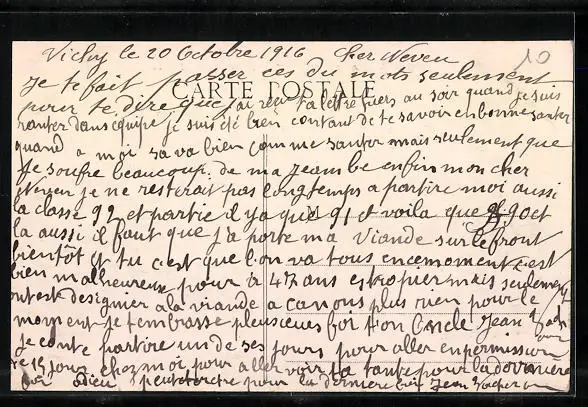 Vichy le 20 Octobre 1916 Cher Neveu
10
Je te fait passer ces du mots seulement
CARTE POSTALE
pour te dire que j'ai reçu ta letre hiers au soir quand je suis
ranter dans équipe je suis été bien contant de te savoir en bonne santer
quand a moi sa va bien comme santer mais seulement que
Je soufre beaucoup de ma jeambe enfin mon cher
neveu je ne resterait pas longtemps a partire moi aussi
la classe 92 et partie il y a que 91 et voila que 90 et
la aussi il faut que j'a porte ma viande sur le front
bientôt et tu c'est que l'on va tous en ce moment c'est
bien malheureuse pour à 47 ans estropier mais seulement
sont designier a la viande a canons plus rien pour le
moment je t'embrasse plusieues foi ton Oncle Jean
je conte partire un de ses jours pour aller en permission
15 jours chez moi pour aller voir ta tante pour la
Adieu peutetre pour la derniere foi Jean